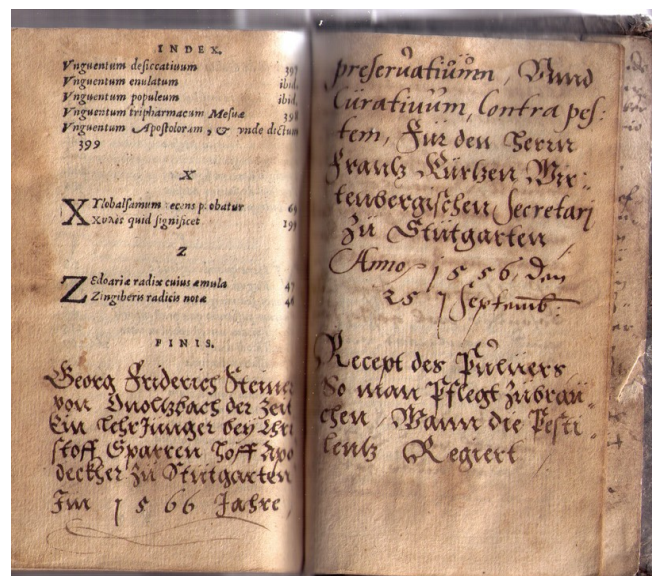 INDEX.
Vnguentum desiccatiuum 397
Vnguentum enulatum ibid.
Vnguentum populeum ibid.
Vnguentum tripharmacum Mesuæ 398
Vnguentum Apostolorum, & vnde dictum
399
X
XYlobalsamum recens probatur 69
Χυλὸς quid significet 199
Z
ZEdoariæ radix cuius æmula 47
Zingiberis radicis notæ 46
FINIS.
Georg Friderich Steine
von Onoltzbach der Zeit
Ein LehrJunger bey Chri
stoff, Sparren Hoff Apo
deckher zu Stutgarten
Im 1566 Jahre,
preseruatiuum, Vund
Curatiuum, Contra pes:
tem, Für den Herrn
Frantz Kürtzen Wir:
tenbergischen Secretari
Zu Stutgarten
Anno 1556, den
25 7 Septemb:
Recept des Puluers
So man Pflegt Zubrau:
chen, Wann die Pesti:
lentz Regiert